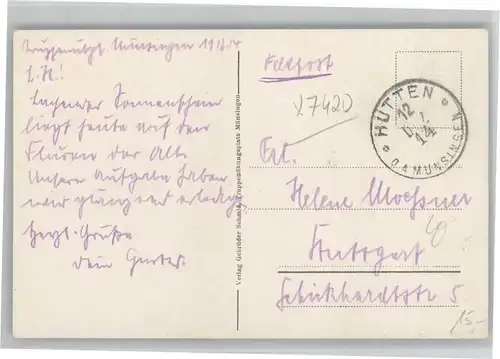 Truppenübpl. Münsingen 19
L. H.!
Lachender Sonnenschein
liegt heute auf den
Fluren der Alb.
Unsere Aufgabe haben
wir glänzend erledigt
Herzl. Grüße
Dein Gustav.
Verlag Gebrüder Schmid, Truppenübungsplatz Münsingen.
Feldpost
X7420
HÜTTEN
12
14
O.A MÜNSINGEN
Frl.
Helene Moessner
Stuttgart
Schickhardtstr 5
15.-